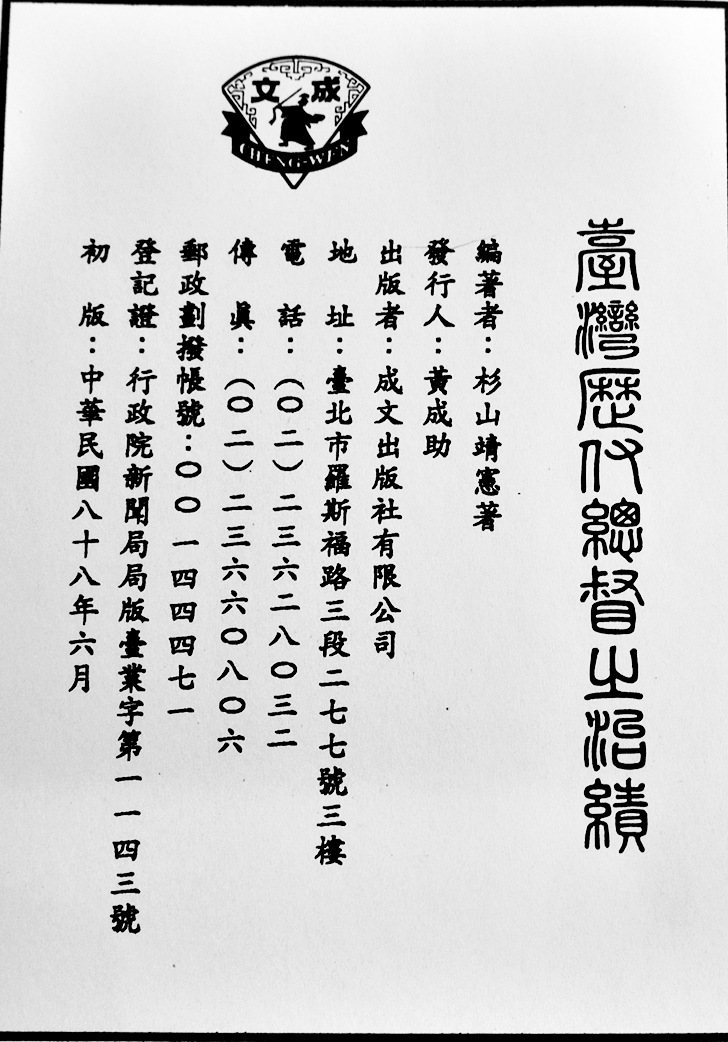 文成
CHENG-WEN
臺灣歷代總督之治績
編著者：杉山靖憲著
發行人：黃成助
出版者：成文出版社有限公司
地　址：臺北市羅斯福路三段二七七號三樓
電　話：（〇二）二三六二八〇三二
傳　眞：（〇二）二三六六〇八〇六
郵政劃撥帳號：〇〇一四四四七一
登記證：行政院新聞局局版臺業字第一一四三號
初　版：中華民國八十八年六月